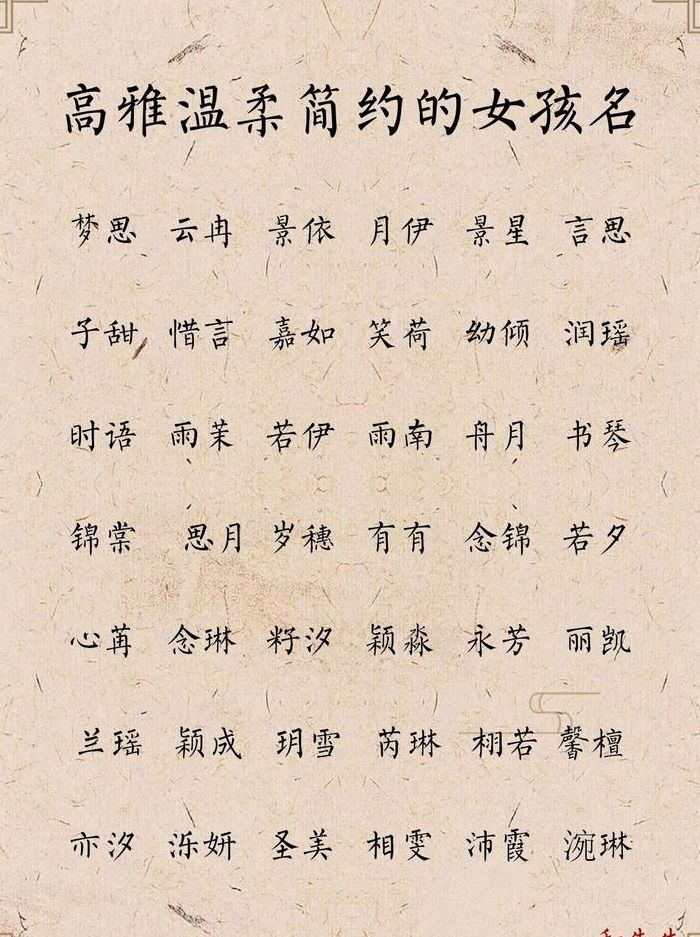 高雅温柔简约的女孩名
梦思 云冉 景依 月伊 景星 言思
子甜 惜言 嘉如 笑荷 幼倾 润瑶
时语 雨茉 若伊 雨南 舟月 书琴
锦棠 思月 岁穗 有有 念锦 若夕
心苒 念琳 籽汐 颖淼 永芳 丽凯
兰瑶 颖成 玥雪 芮琳 栩若 馨檀
亦汐 泺妍 圣美 相雯 沛霞 涴琳